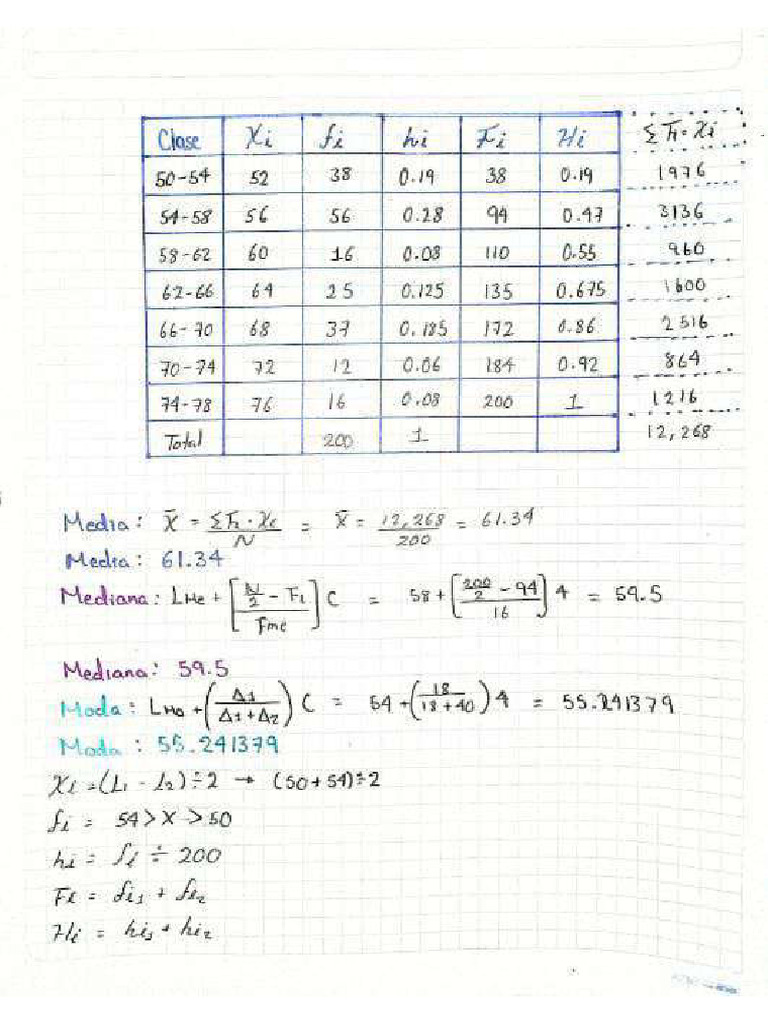 Clase Xi fi hi Fi Hi Σ Fi·Xi
50-54 52 38 0.19 38 0.19 1976
54-58 56 56 0.28 94 0.47 3136
58-62 60 16 0.08 110 0.55 960
62-66 64 25 0.125 135 0.675 1600
66-70 68 37 0.185 172 0.86 2516
70-74 72 12 0.06 184 0.92 864
74-78 76 16 0.08 200 1 1216
Total 200 1 12,268
Media: X̄ = ΣFi·Xi/N = X̄ = 12,268/200 = 61.34
Media: 61.34
Mediana: LMe + [(N/2 - Fi)/Fme] C = 58 + [(200/2 - 94)/16] 4 = 59.5
Mediana: 59.5
Moda: LMo + (Δ1/(Δ1+Δ2)) C = 54 + (18/(18+40)) 4 = 55.241379
Moda: 55.241379
Xi = (L1 - L2) ÷ 2 → (50+54) ÷ 2
fi = 54 > X > 50
hi = fi ÷ 200
Fi = fi1 + fi2
Hi = hi1 + hi2